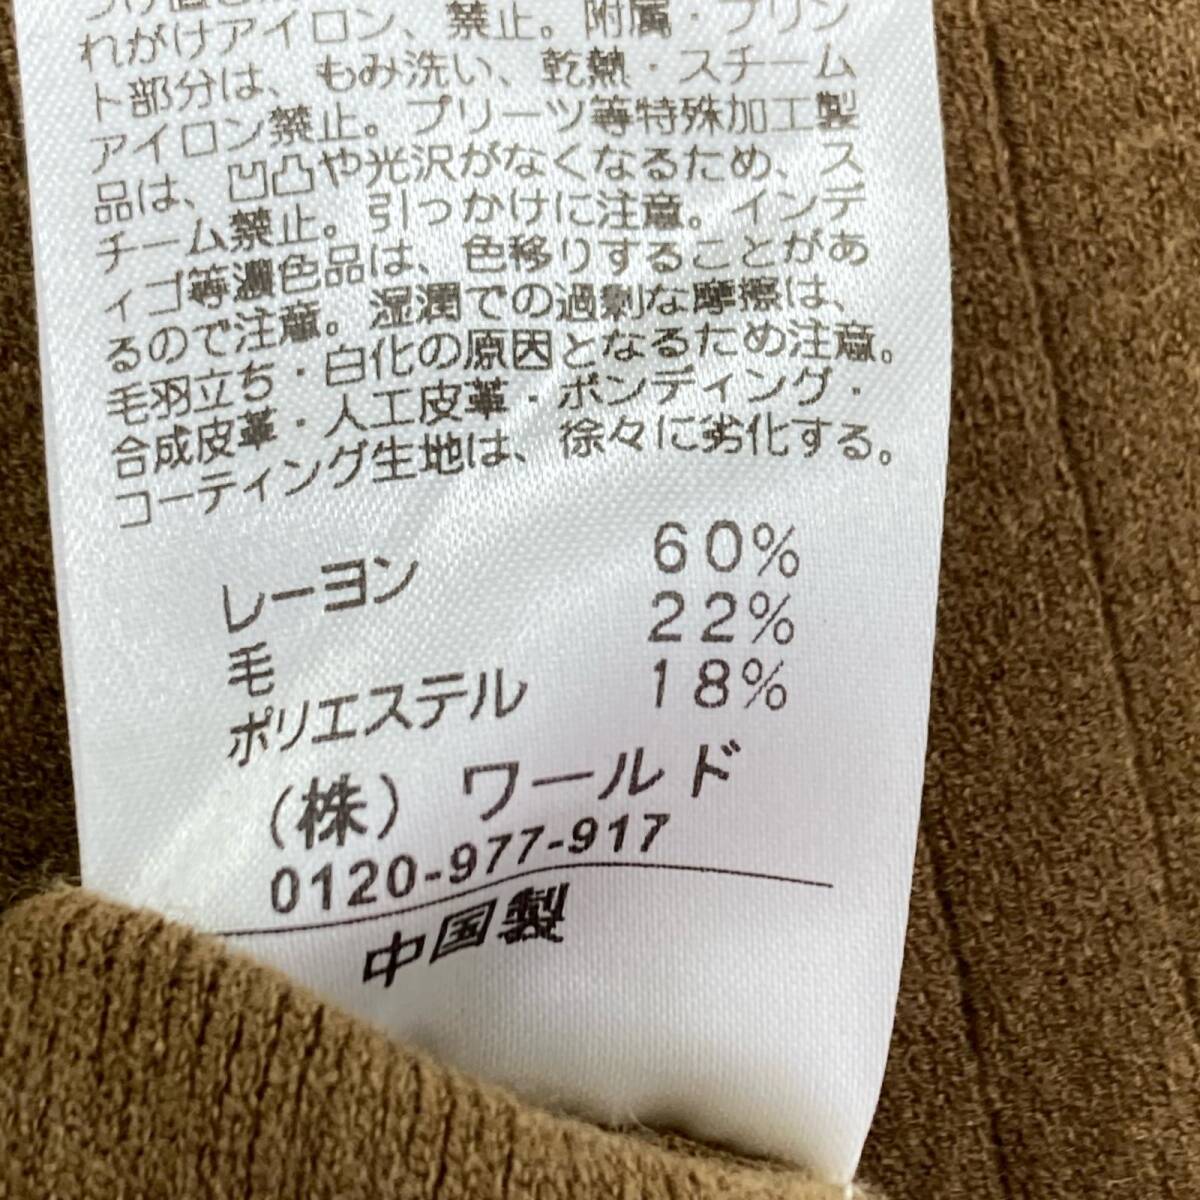 れがけアイロン、禁止。附属・プリン
ト部分は、もみ洗い、乾熱・スチーム
アイロン禁止。プリーツ等特殊加工製
品は、凹凸や光沢がなくなるため、ス
チーム禁止。引っかけに注意。インデ
ィゴ等濃色品は、色移りすることがあ
るので注意。湿潤での過剰な摩擦は、
毛羽立ち・白化の原因となるため注意。
合成皮革・人工皮革・ボンディング・
コーティング生地は、徐々に劣化する。
レーヨン 60%
毛 22%
ポリエステル 18%
(株) ワールド
0120-977-917
中国製